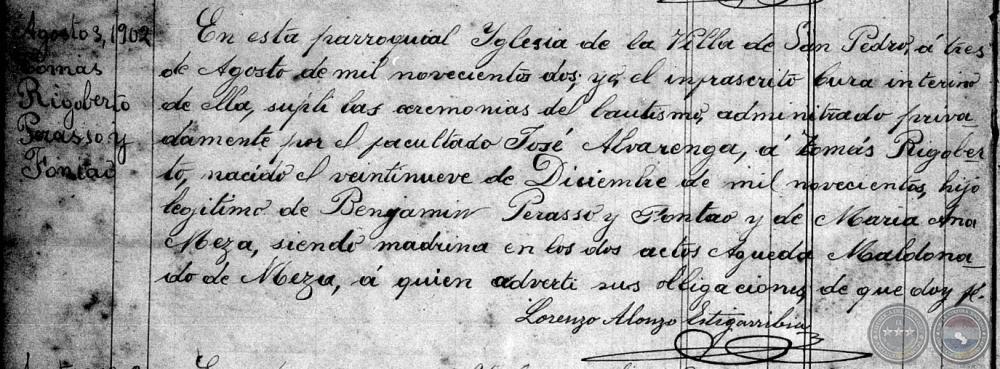 Agosto 3, 1902
Tomás
Rigoberto
Perasso y
Fontao
En esta parroquial Yglesia de la Villa de San Pedro, á tres
de Agosto de mil novecientos dos; yo, el infrascrito Cura interino
de ella, suplí las ceremonias del bautismo, administrado priva-
damente por el facultado José Alvarenga, á Tomás Rigober-
to, nacido el veintinueve de Diciembre de mil novecientos, hijo
legítimo de Bengamin Perasso y Fontao y de Maria Ana
Meza, siendo madrina en los dos actos Agueda Maldona-
do de Meza, á quien advertí sus obligaciones, de que doy fé.
Lorenzo Alonzo Estigarribia